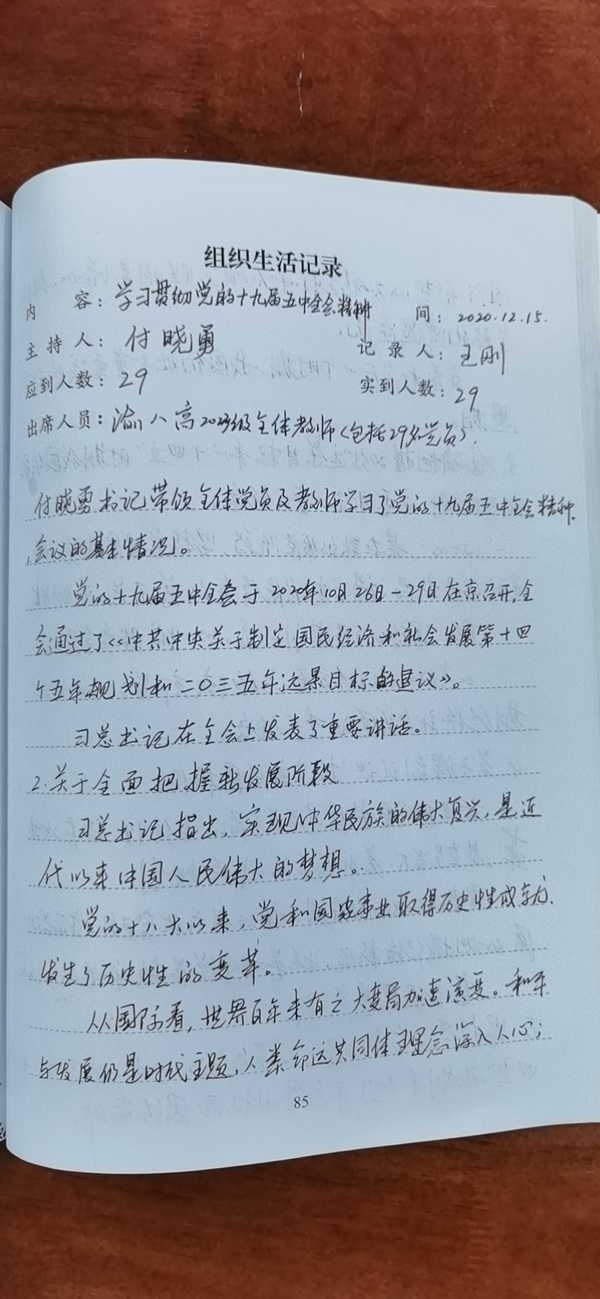 组织生活记录
内 容：学习贯彻党的十九届五中全会精神 间：2020.12.15.
主持人：付晓勇 记录人：王刚
应到人数：29 实到人数：29
出席人员：渝八高2023级全体教师（包括29名党员）.
付晓勇书记带领全体党员及教师学习了党的十九届五中全会精神.
会议的基本情况。
党的十九届五中全会于2020年10月26日-29日在京召开,全
会通过了<<中共中央关于制定国民经济和社会发展第十四
个五年规划和二〇三五年远景目标的建议>>。
习总书记在全会上发表了重要讲话。
2.关于全面把握新发展阶段
习总书记指出，实现中华民族的伟大复兴，是近
代以来中国人民伟大的梦想。
党的十八大以来，党和国家事业取得历史性成就.
发生了历史性的变革。
从国际看，世界百年未有之大变局加速演变。和平
与发展仍是时代主题，人类命运共同体理念深入人心；
85